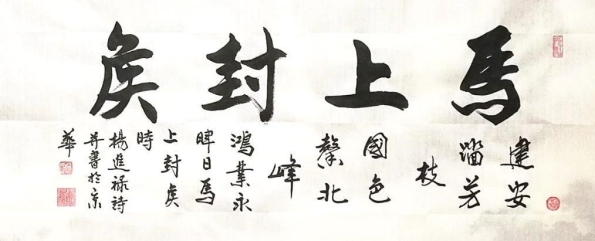 馬上封矦
建安
踏芳
枝
國色
馨北
峰
鴻業永
睥日馬
上封矦
時
楊進禄詩
并書於京
華